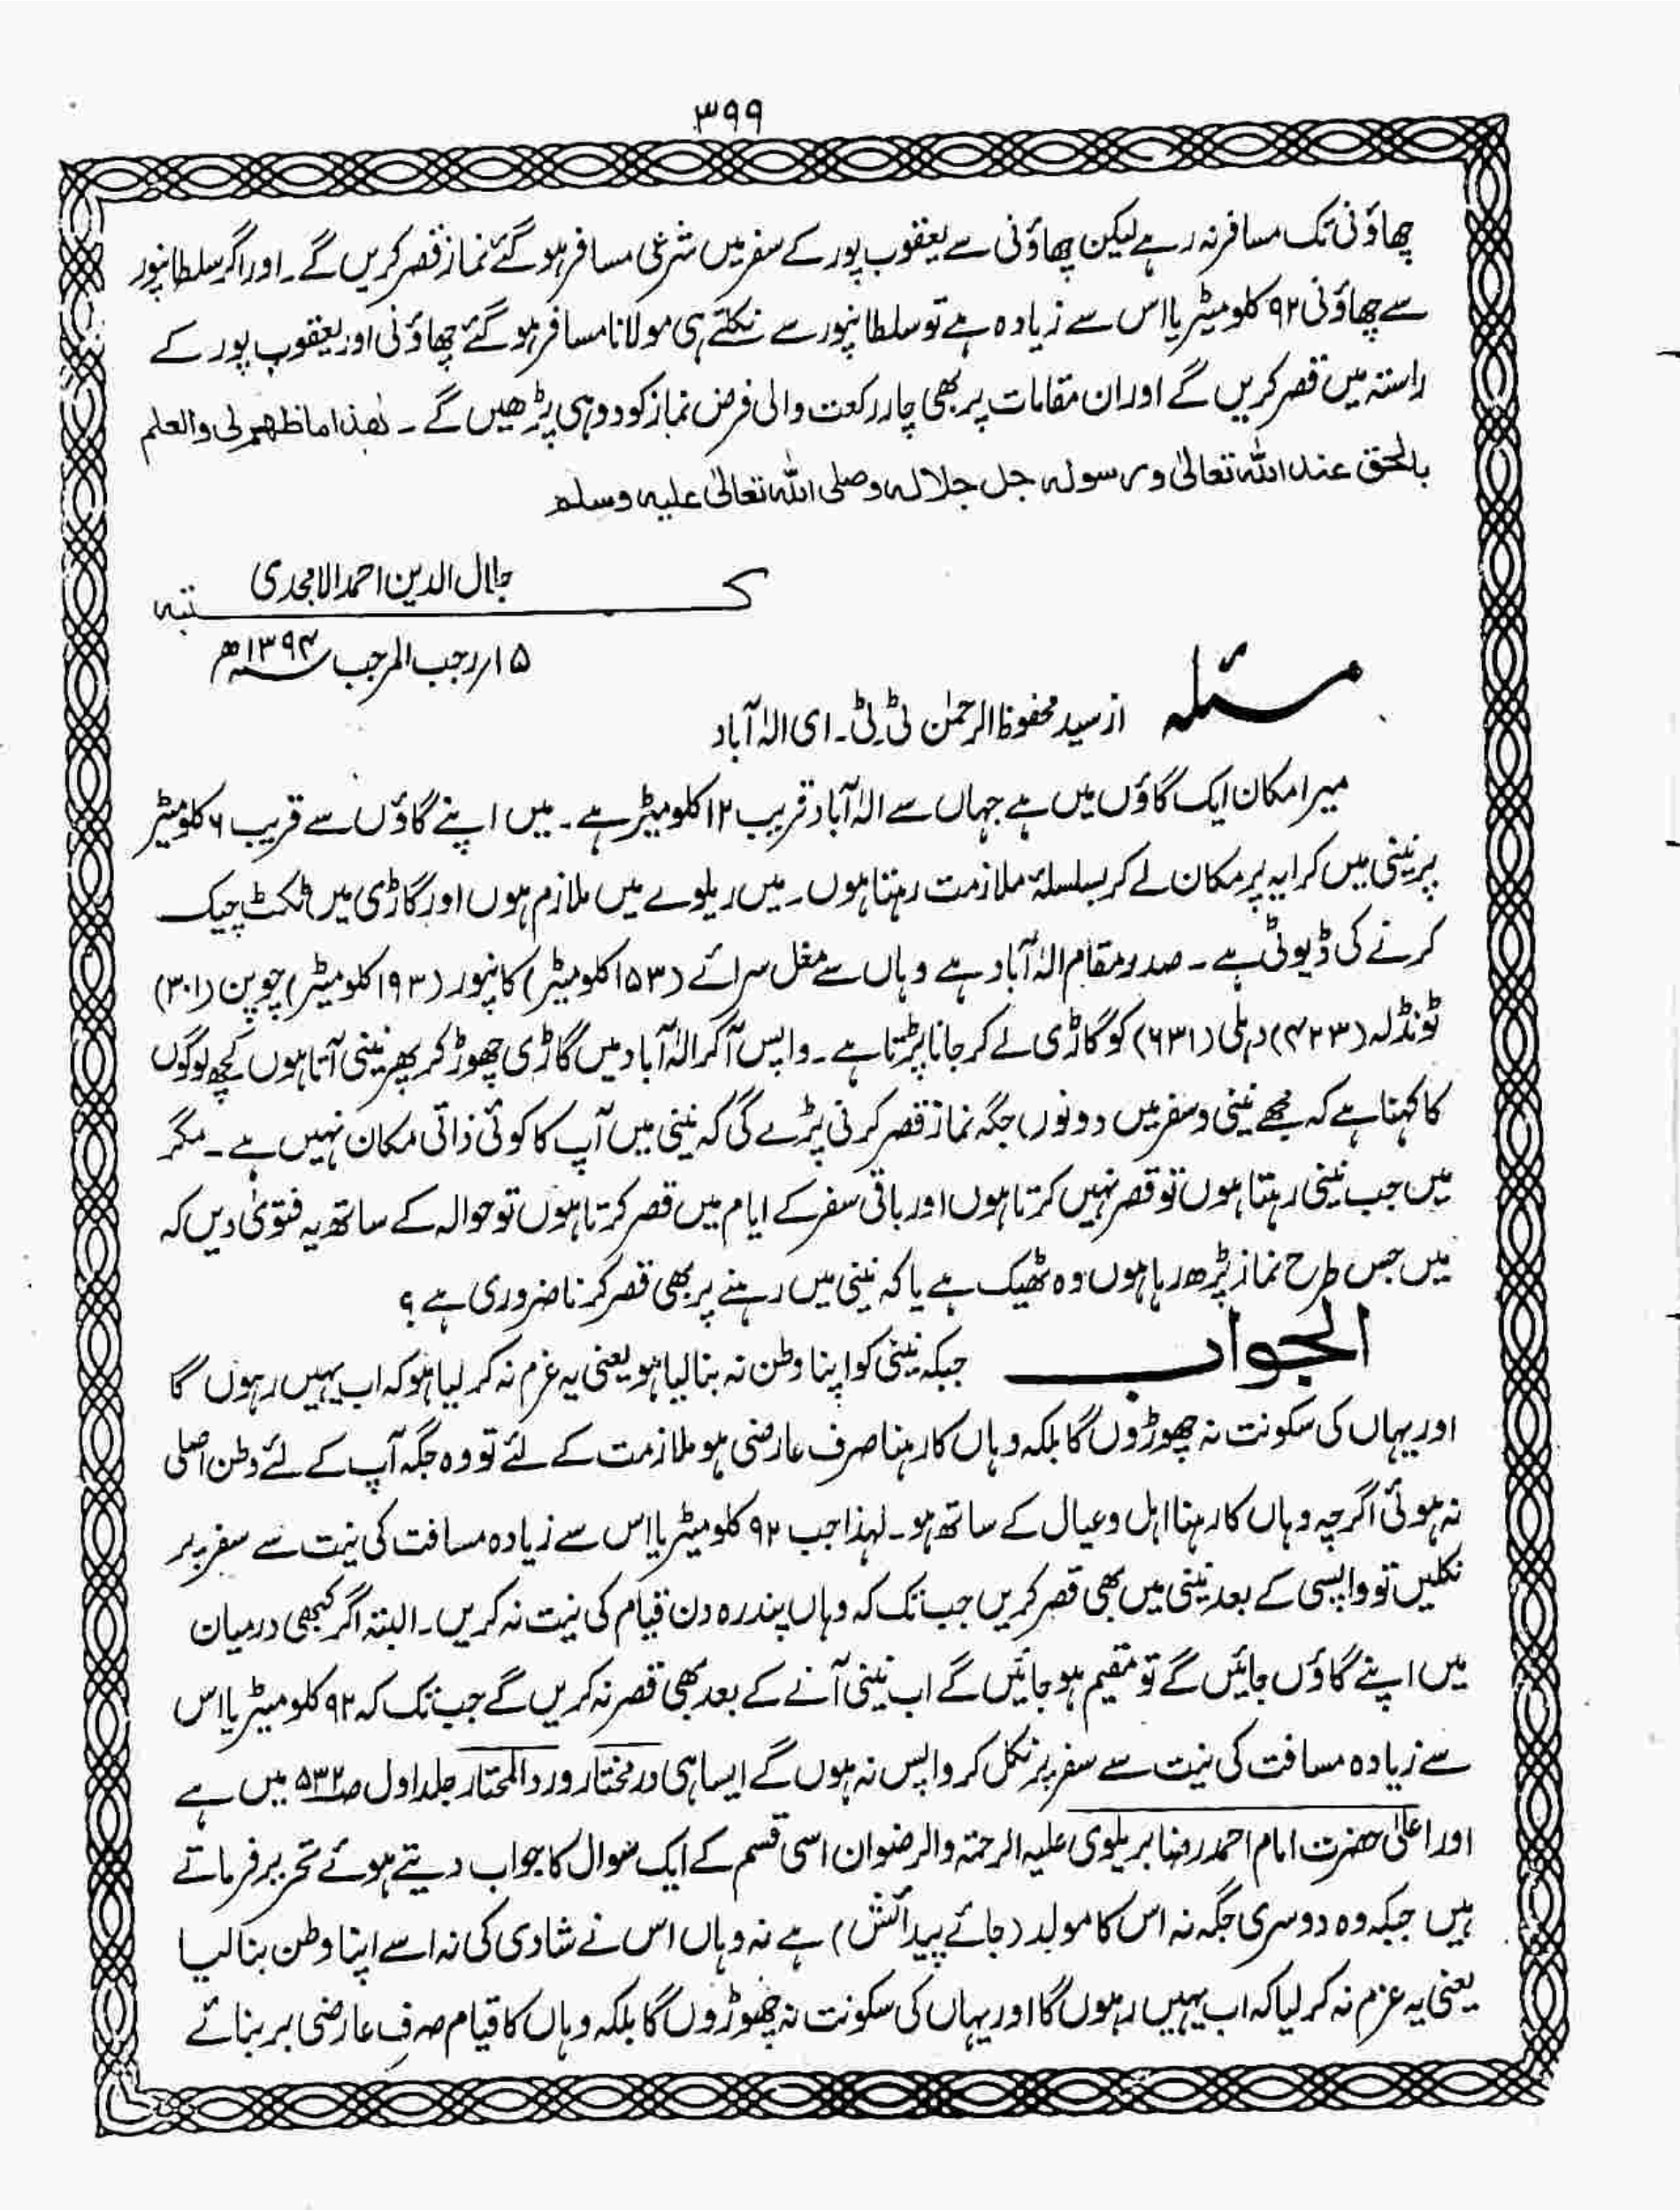 ۳۹۹
چھاؤنی تک مسافر نہ رہے لیکن چھاؤنی سے یعقوب پور کے سفر میں شرعی مسافر ہو گئے نماز قصر کریں گے۔ اور اگر سلطانپور
سے چھاؤنی ۹۲ کلومیٹر یا اس سے زیادہ ہے تو سلطانپور سے نکلتے ہی مولانا مسافر ہو گئے چھاؤنی اور یعقوب پور کے
راستہ میں قصر کریں گے اور ان مقامات پر بھی چار رکعت والی فرض نماز کو دو ہی پڑھیں گے۔ ھٰذا ما ظھر لی والعلم
بالحق عند اللہ تعالیٰ ورسولہ جل جلالہ وصلی اللہ تعالیٰ علیہ وسلم
جلال الدین احمد الامجدی
کتبہ
۱۵؍ رجب المرجب ۱۳۹۴ھ
مسئلہ از سید محفوظ الرحمٰن ٹی۔ٹی۔ ای الہٰ آباد
میرا مکان ایک گاؤں میں ہے جہاں سے الہٰ آباد قریب ۱۲ کلومیٹر ہے۔ میں اپنے گاؤں سے قریب ۶ کلومیٹر
پر نینی میں کرایہ پر مکان لے کر بسلسلۂ ملازمت رہتا ہوں۔ میں ریلوے میں ملازم ہوں اور گاڑی میں ٹکٹ چیک
کرنے کی ڈیوٹی ہے۔ صدر مقام الہٰ آباد ہے وہاں سے مغل سرائے (۱۵۳ کلومیٹر) کانپور (۱۹۳ کلومیٹر) چوپن (۳۰۱)
ٹونڈلہ (۴۲۳) دہلی (۶۳۱) کو گاڑی لے کر جانا پڑتا ہے۔ واپس آکر الہٰ آباد میں گاڑی چھوڑ کر پھر نینی آتا ہوں کچھ لوگوں
کا کہنا ہے کہ مجھے نینی و سفر میں دونوں جگہ نماز قصر کرنی پڑے گی کہ نینی میں آپ کا کوئی ذاتی مکان نہیں ہے۔ مگر
میں جب نینی رہتا ہوں تو قصر نہیں کرتا ہوں اور باقی سفر کے ایام میں قصر کرتا ہوں تو حوالہ کے ساتھ یہ فتویٰ دیں کہ
میں جس طرح نماز پڑھ رہا ہوں وہ ٹھیک ہے یا کہ نینی میں رہنے پر بھی قصر کرنا ضروری ہے؟
الجواب جبکہ نینی کو اپنا وطن نہ بنا لیا ہو یعنی یہ عزم نہ کر لیا ہو کہ اب یہیں رہوں گا
اور یہاں کی سکونت نہ چھوڑوں گا بلکہ وہاں کا رہنا صرف عارضی ہو ملازمت کے لئے تو وہ جگہ آپ کے لئے وطن اصلی
نہ ہوئی اگرچہ وہاں کا رہنا اہل و عیال کے ساتھ ہو۔ لہذا جب ۹۲ کلومیٹر یا اس سے زیادہ مسافت کی نیت سے سفر پر
نکلیں تو واپسی کے بعد نینی میں بھی قصر کریں جب تک کہ وہاں پندرہ دن قیام کی نیت نہ کریں۔ البتہ اگر کبھی درمیان
میں اپنے گاؤں جائیں گے تو مقیم ہو جائیں گے اب نینی آنے کے بعد بھی قصر نہ کریں گے جب تک کہ ۹۲ کلومیٹر یا اس
سے زیادہ مسافت کی نیت سے سفر پر نکل کر واپس نہ ہوں گے ایسا ہی در مختار ورد المحتار جلد اول ص۵۳۲ میں ہے
اور اعلیٰ حضرت امام احمد رضا بریلوی علیہ الرحمۃ والرضوان اسی قسم کے ایک سوال کا جواب دیتے ہوئے تحریر فرماتے
ہیں جبکہ وہ دوسری جگہ نہ اس کا مولد (جائے پیدائش) ہے نہ وہاں اس نے شادی کی نہ اسے اپنا وطن بنا لیا
یعنی یہ عزم نہ کر لیا کہ اب یہیں رہوں گا اور یہاں کی سکونت نہ چھوڑوں گا بلکہ وہاں کا قیام صرف عارضی بر بنائے